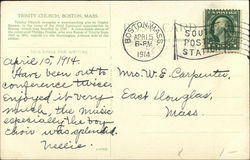 TRINITY CHURCH, BOSTON, MASS.
THIS SPACE FOR WRITING
BOSTON, MASS.
APR 15
6-PM
1914
SOU
POST
STAT
April 15, 1914.
Have been out to
conference twice.
Enjoyed it very
much, the music
especially the boy
choir was splendid.
Nellie.
Mrs W. E. Carpenter,
East Douglas,
Mass.